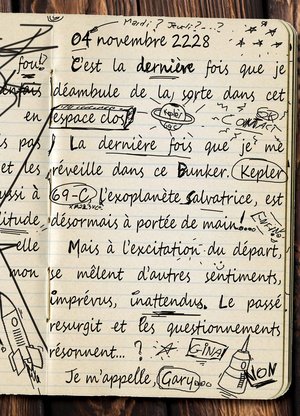 Mardi ? Jeudi ?...?
04 novembre 2228
fou!? C'est la dernière fois que je
enfais déambule de la sorte dans cet
en espace clos,
s pas La dernière fois que je me
et les réveille dans ce Bunker. Kepler
ussi à 69-C, l'exoplanète salvatrice, est
litude désormais à portée de main...
elle Mais à l'excitation du départ,
mon se mêlent d'autres sentiments,
imprévus, inattendus. Le passé
resurgit et les questionnements
résonnent... ?
GINA
NON
Je m'appelle, Gary...